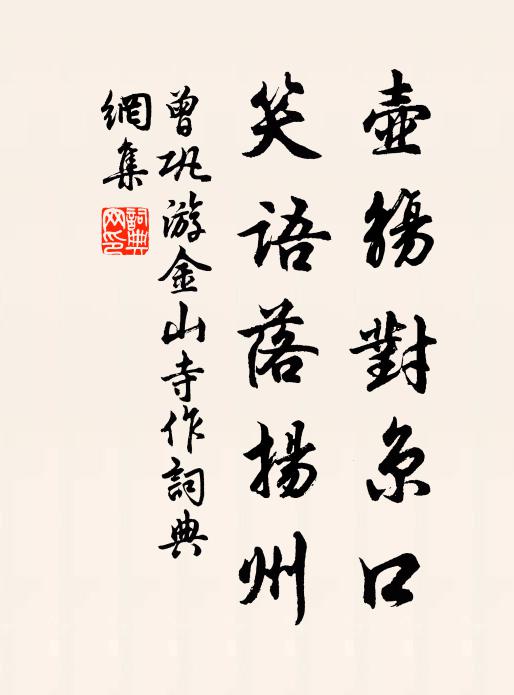 壺觴對京口
笑語落揚州
曾巩游金山寺作詞典
網集
詞典網印